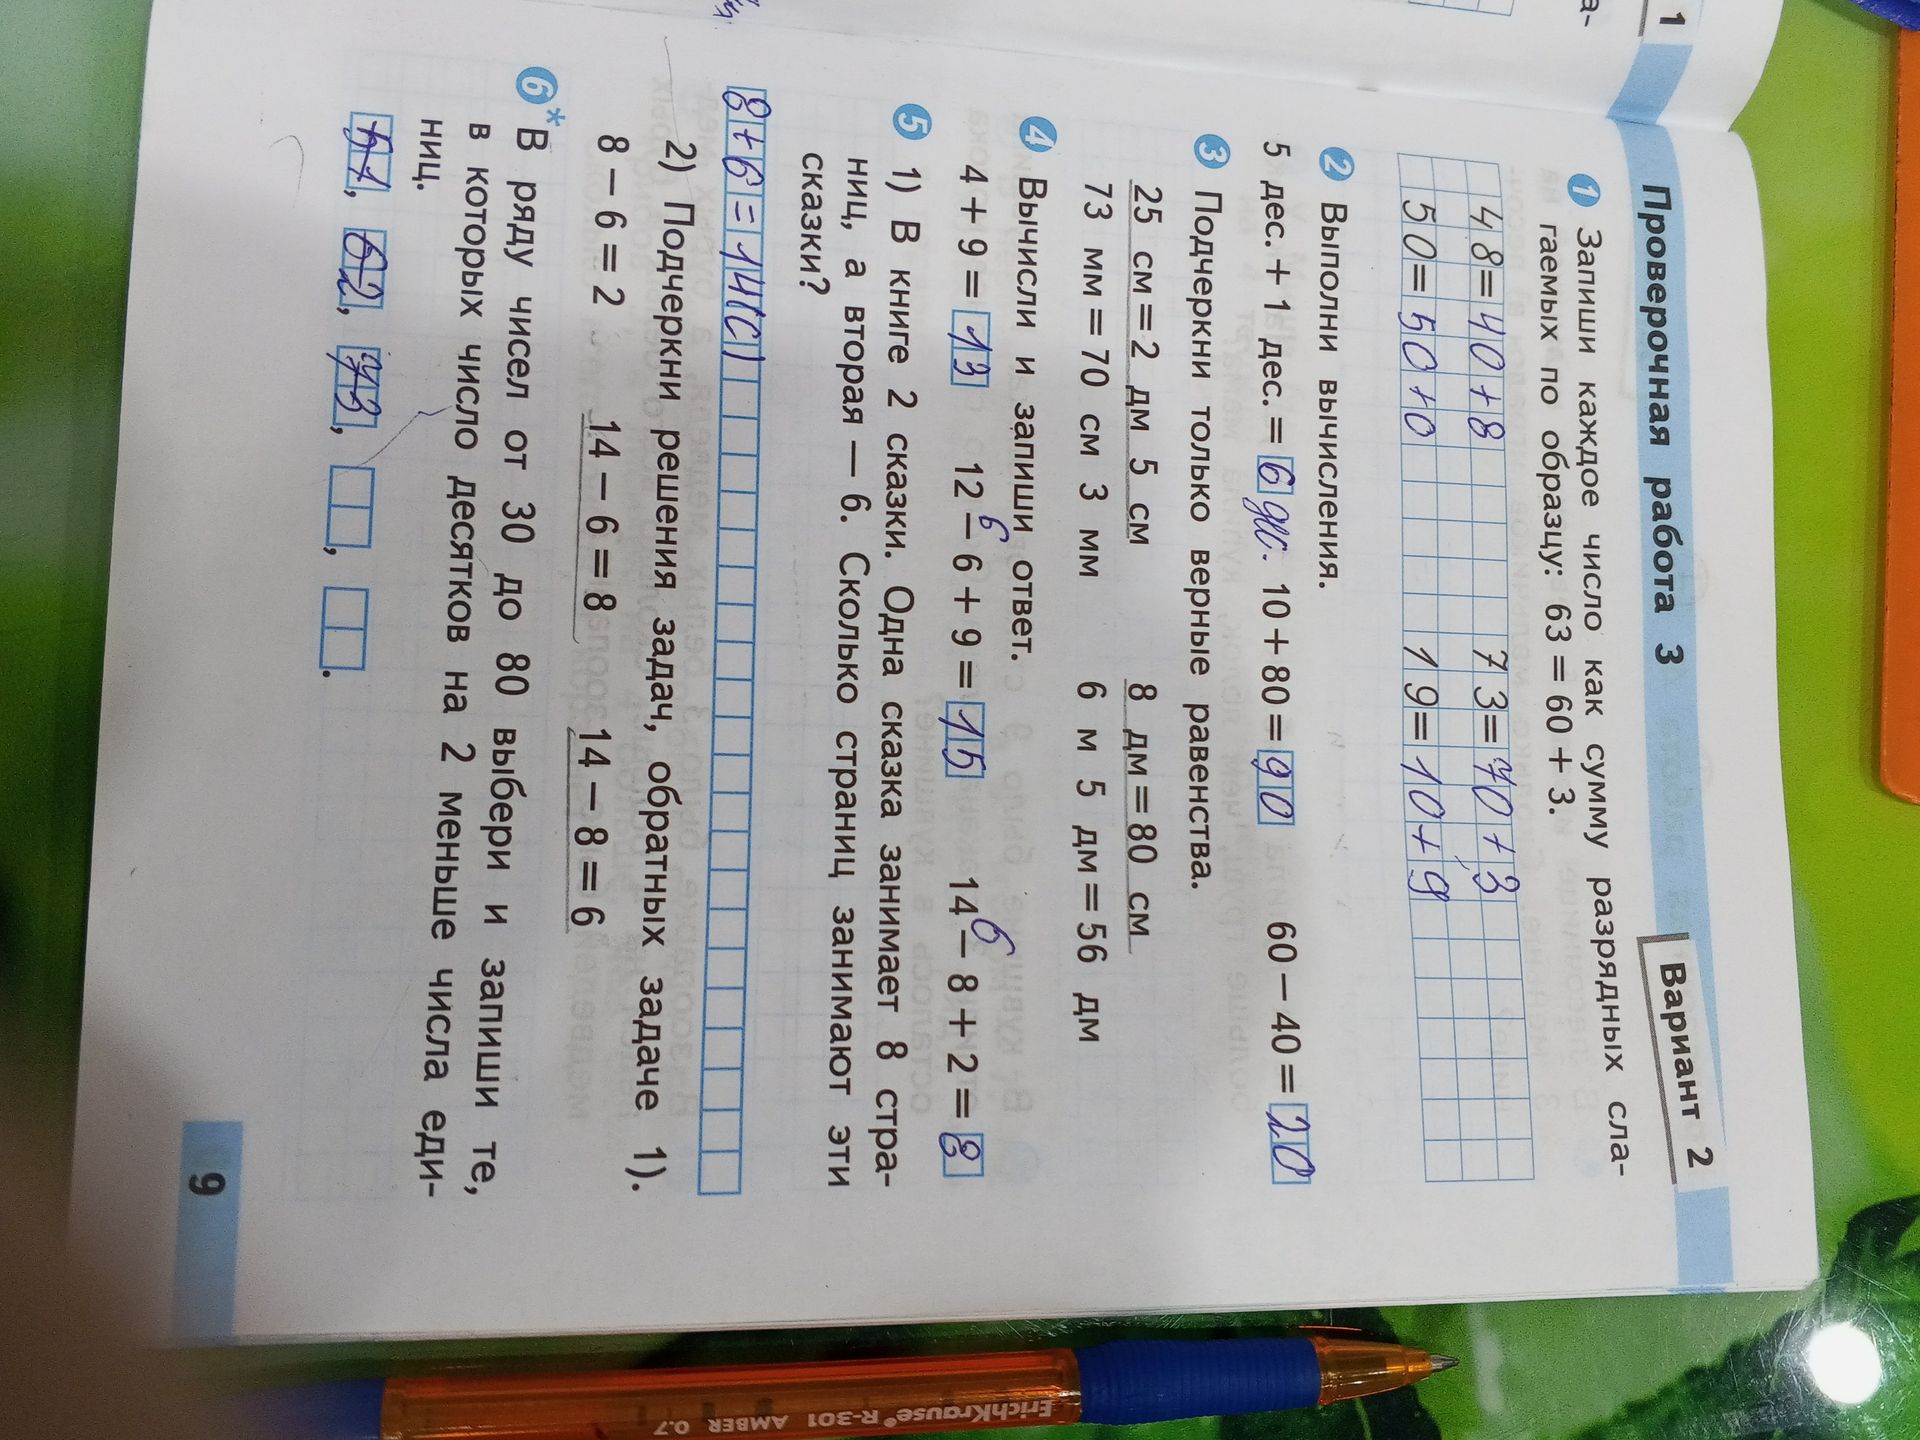 Проверочная работа 3
Вариант 2
1 Запиши каждое число как сумму разрядных сла-
гаемых по образцу: 63 = 60 + 3.
48 = 40 + 8 73 = 70 + 3
50 = 50 + 0 19 = 10 + 9
2 Выполни вычисления.
5 дес. + 1 дес. = 6 дес. 10 + 80 = 90 60 − 40 = 20
3 Подчеркни только верные равенства.
25 см = 2 дм 5 см 8 дм = 80 см
73 мм = 70 см 3 мм 6 м 5 дм = 56 дм
4 Вычисли и запиши ответ.
6 6
4 + 9 = 13 12 − 6 + 9 = 15 14 − 8 + 2 = 8
5 1) В книге 2 сказки. Одна сказка занимает 8 стра-
ниц, а вторая — 6. Сколько страниц занимают эти
сказки?
8 + 6 = 14 (с)
2) Подчеркни решения задач, обратных задаче 1).
8 − 6 = 2 14 − 6 = 8 14 − 8 = 6
6* В ряду чисел от 30 до 80 выбери и запиши те,
в которых число десятков на 2 меньше числа еди-
ниц.
51, 62, 73, , .
9
ErichKrause® R-301 AMBER 0.7
1
а-